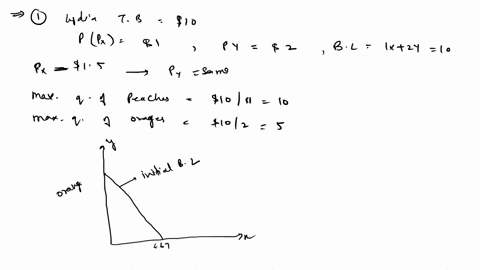 ⇒ ① Lydia T.B = $10
P(Px) = $1 , PY = $2 , B.L = 1x+2Y = 10
Px = $1.5 → Py = same
max. q. of Peaches = $10/$1 = 10
max. q. of oranges = $10/2 = 5
y
initial B.L
orange
6.67
x